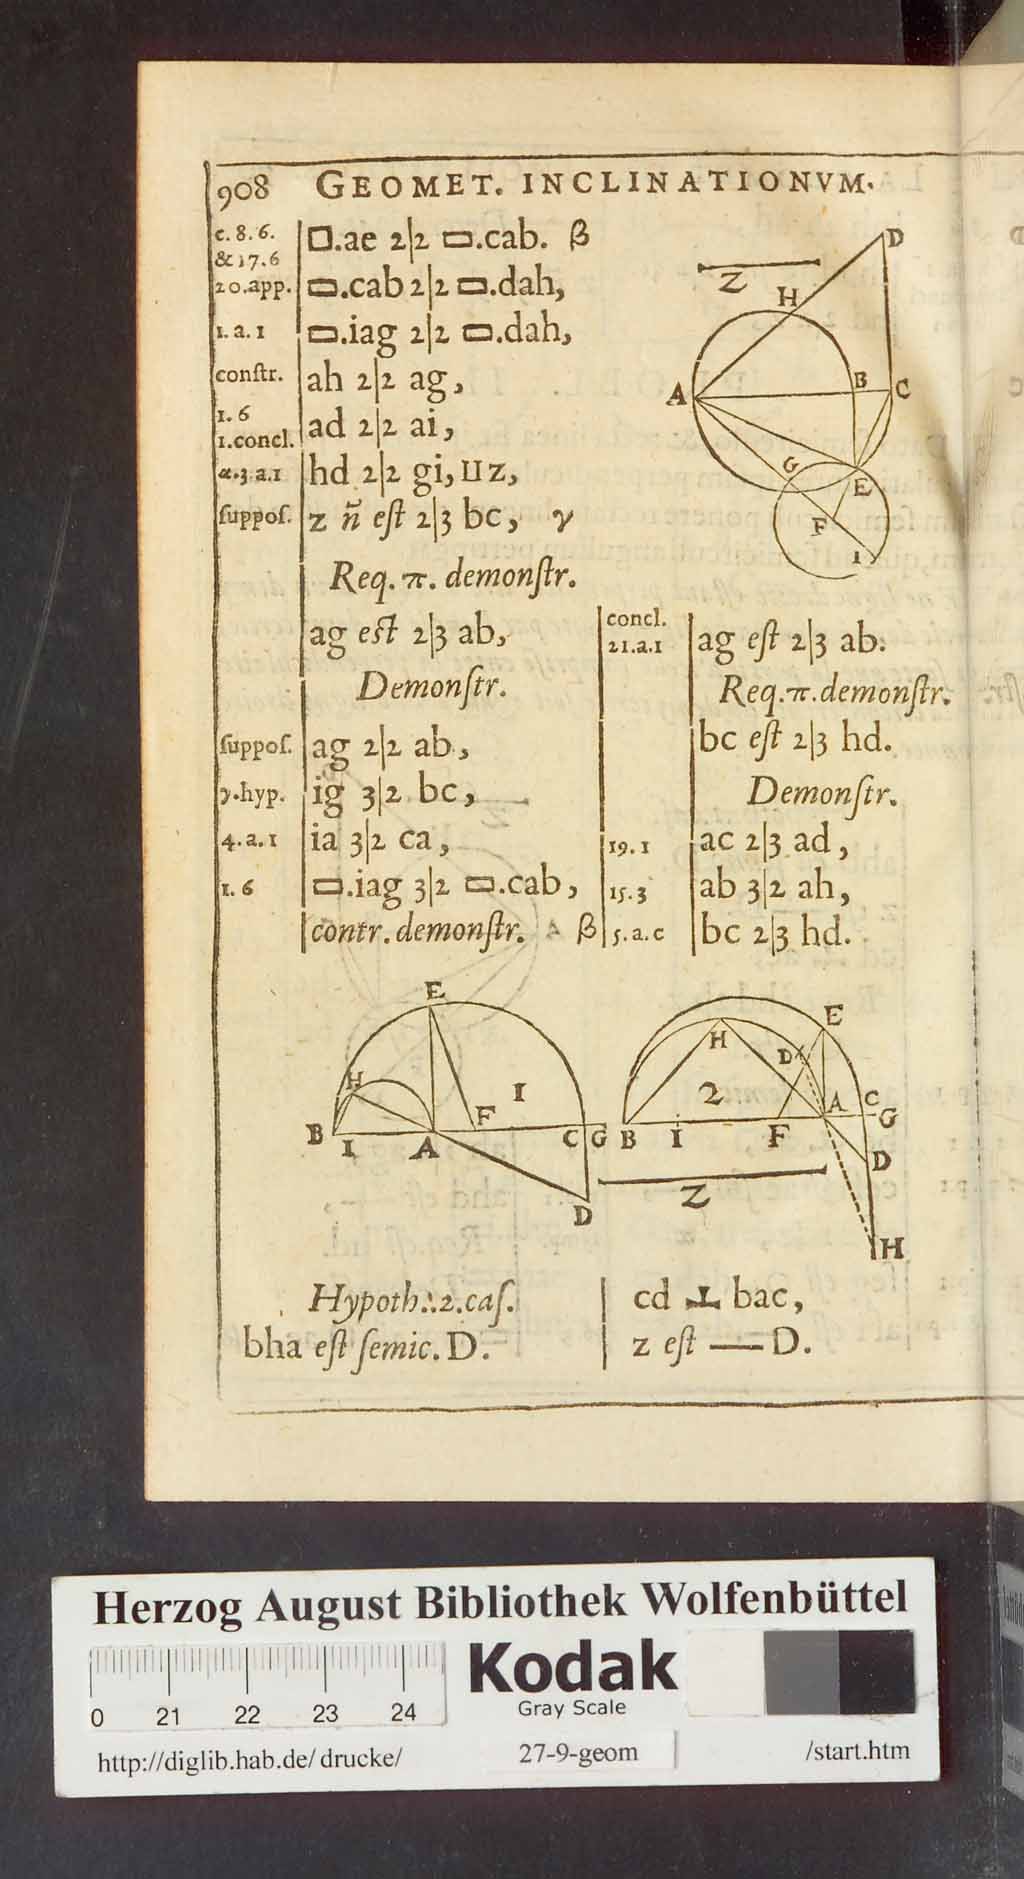 908 GEOMET. INCLINATIONVM.
c. 8. 6. & 17. 6 □.ae 2|2 ▭.cab. β
20. app. ▭.cab 2|2 ▭.dah,
1. a. 1 ▭.iag 2|2 ▭.dah,
constr. ah 2|2 ag,
1. 6 1. concl. ad 2|2 ai,
α. 3. a. 1 hd 2|2 gi, ⊔ z,
suppoſ. z ñ eſt 2|3 bc, γ
Req. π. demonſtr.
ag eſt 2|3 ab,
Demonſtr.
suppoſ. ag 2|2 ab,
γ. hyp. ig 3|2 bc,
4. a. 1 ia 3|2 ca,
1. 6 ▭.iag 3|2 ▭.cab,
contr. demonſtr. β
concl. 21. a. 1 ag eſt 2|3 ab.
Req. π. demonſtr.
bc eſt 2|3 hd.
Demonſtr.
19. 1 ac 2|3 ad,
15. 3 ab 3|2 ah,
5. a. c bc 2|3 hd.
D
Z
H
A
B
C
G
E
F
I
E
H
1
F
B
I
A
C
G
D
E
H
D
2
A
C
G
B
I
F
D
Z
H
Hypoth. 2. caſ.
bha eſt ſemic. D.
cd ⊥ bac,
z eſt — D.
Herzog August Bibliothek Wolfenbüttel
Kodak
Gray Scale
0 21 22 23 24
http://diglib.hab.de/ drucke/ 27-9-geom /start.htm